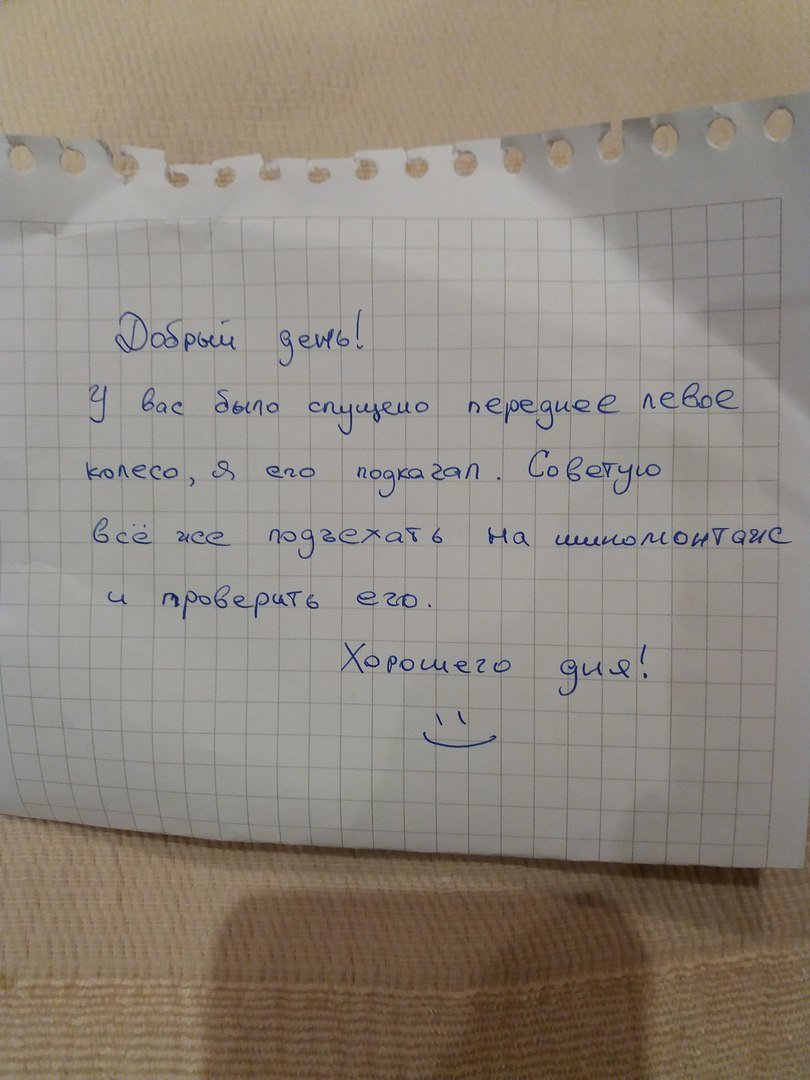 Добрый день!
У вас было спущено переднее левое
колесо, я его подкачал. Советую
всё же подъехать на шиномонтаж
и проверить его.
Хорошего дня!